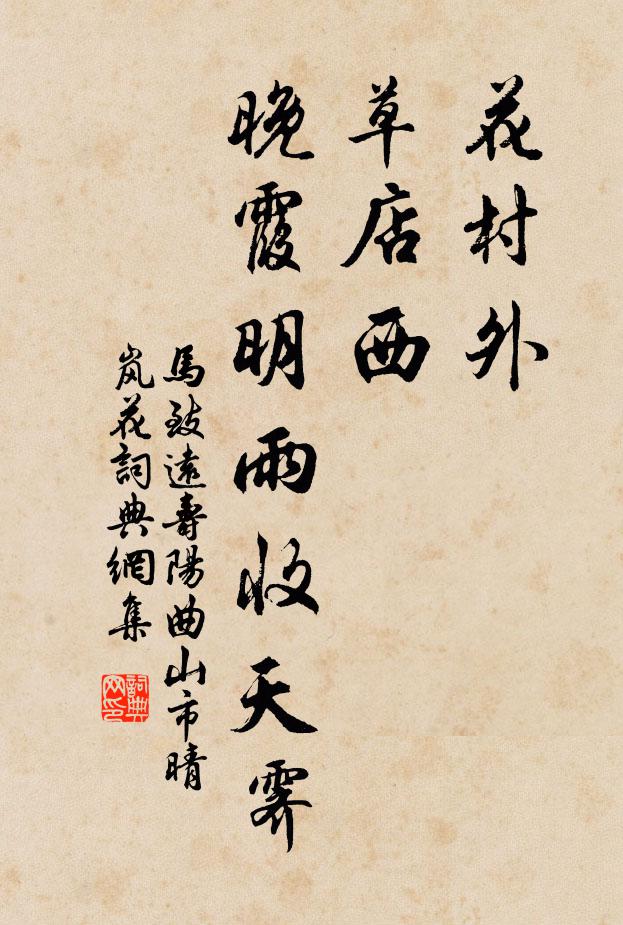 花村外
草店西
晚霞明雨收天霽
馬致遠壽陽曲山市晴
嵐花詞典網集
詞典
网印